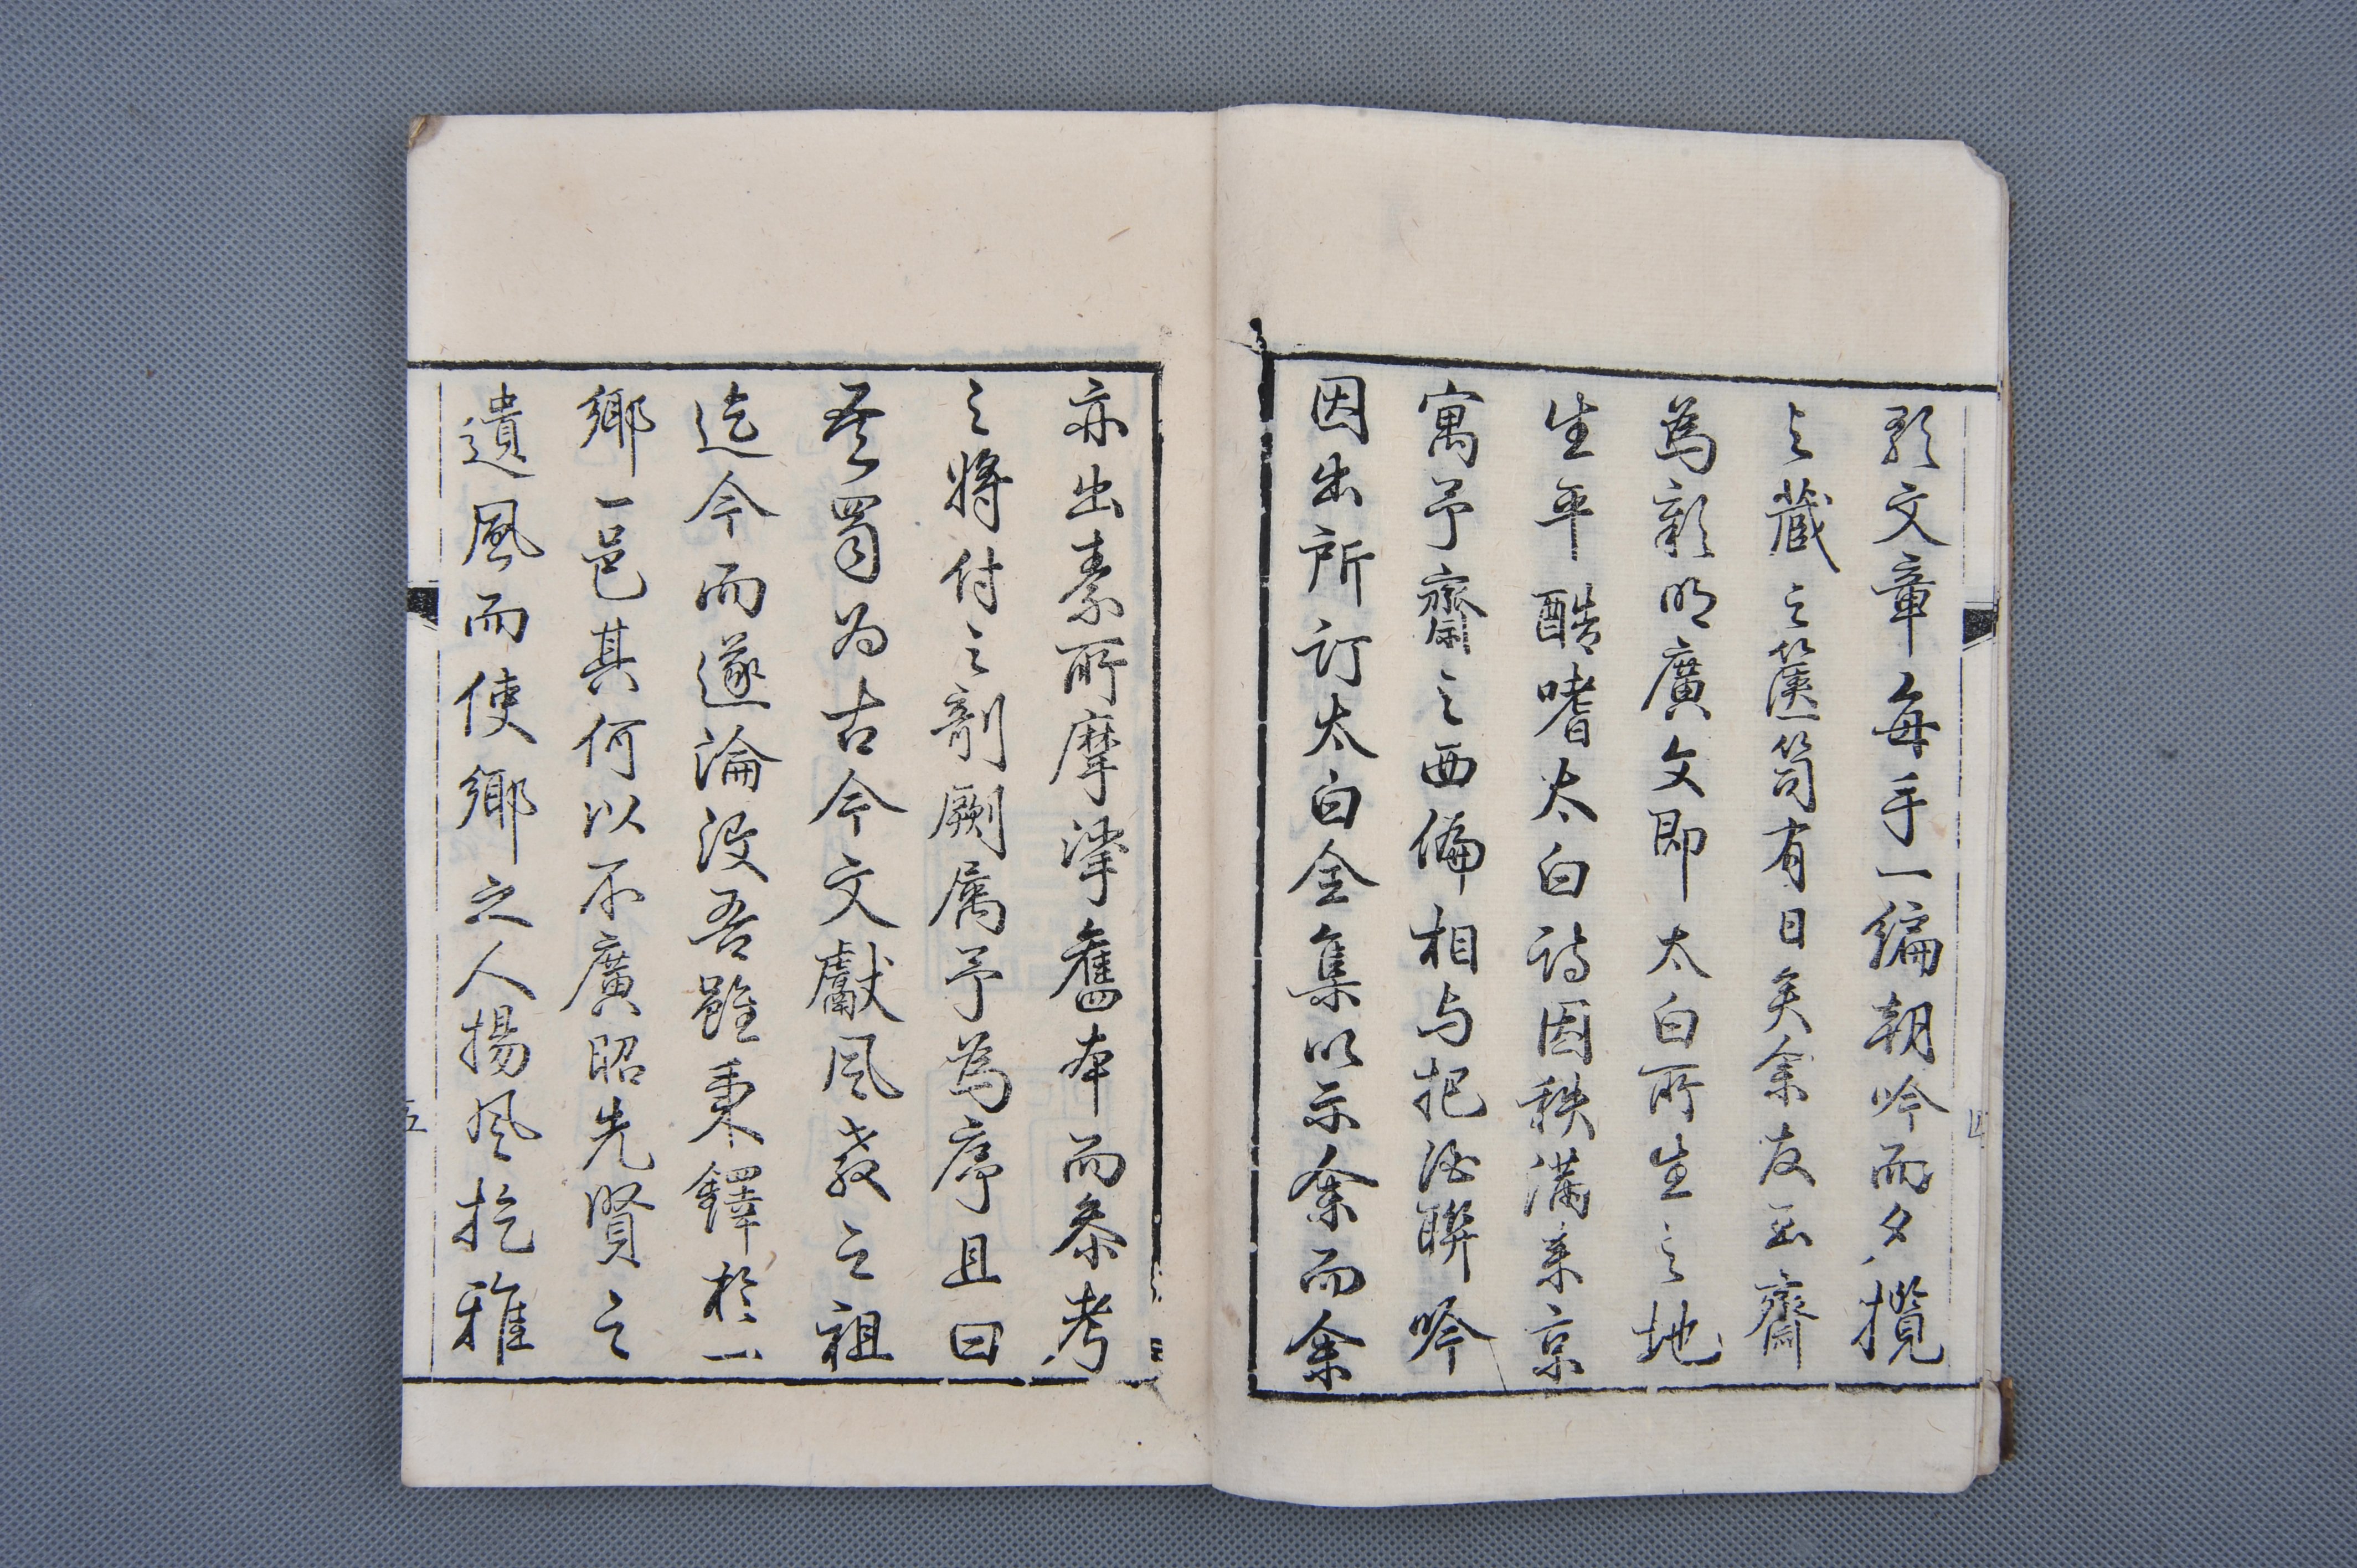 文章每手一編朝吟而夕攬
之藏之篋笥有日矣余友玉齋
為彰明廣文即太白所生之地
生平酷嗜太白詩因秩滿來京
寓予齋之西偏相与把酒聯吟
因出所訂太白全集以示余而余
亦出素所摩挲舊本而叅考
之將付之剞劂属予為序且曰
吾蜀为古今文獻風教之祖
迄今而遂淪没吾雖秉鐸於一
鄉一邑其何以不廣昭先賢之
遺風而使鄉之人揚風扢雅
五